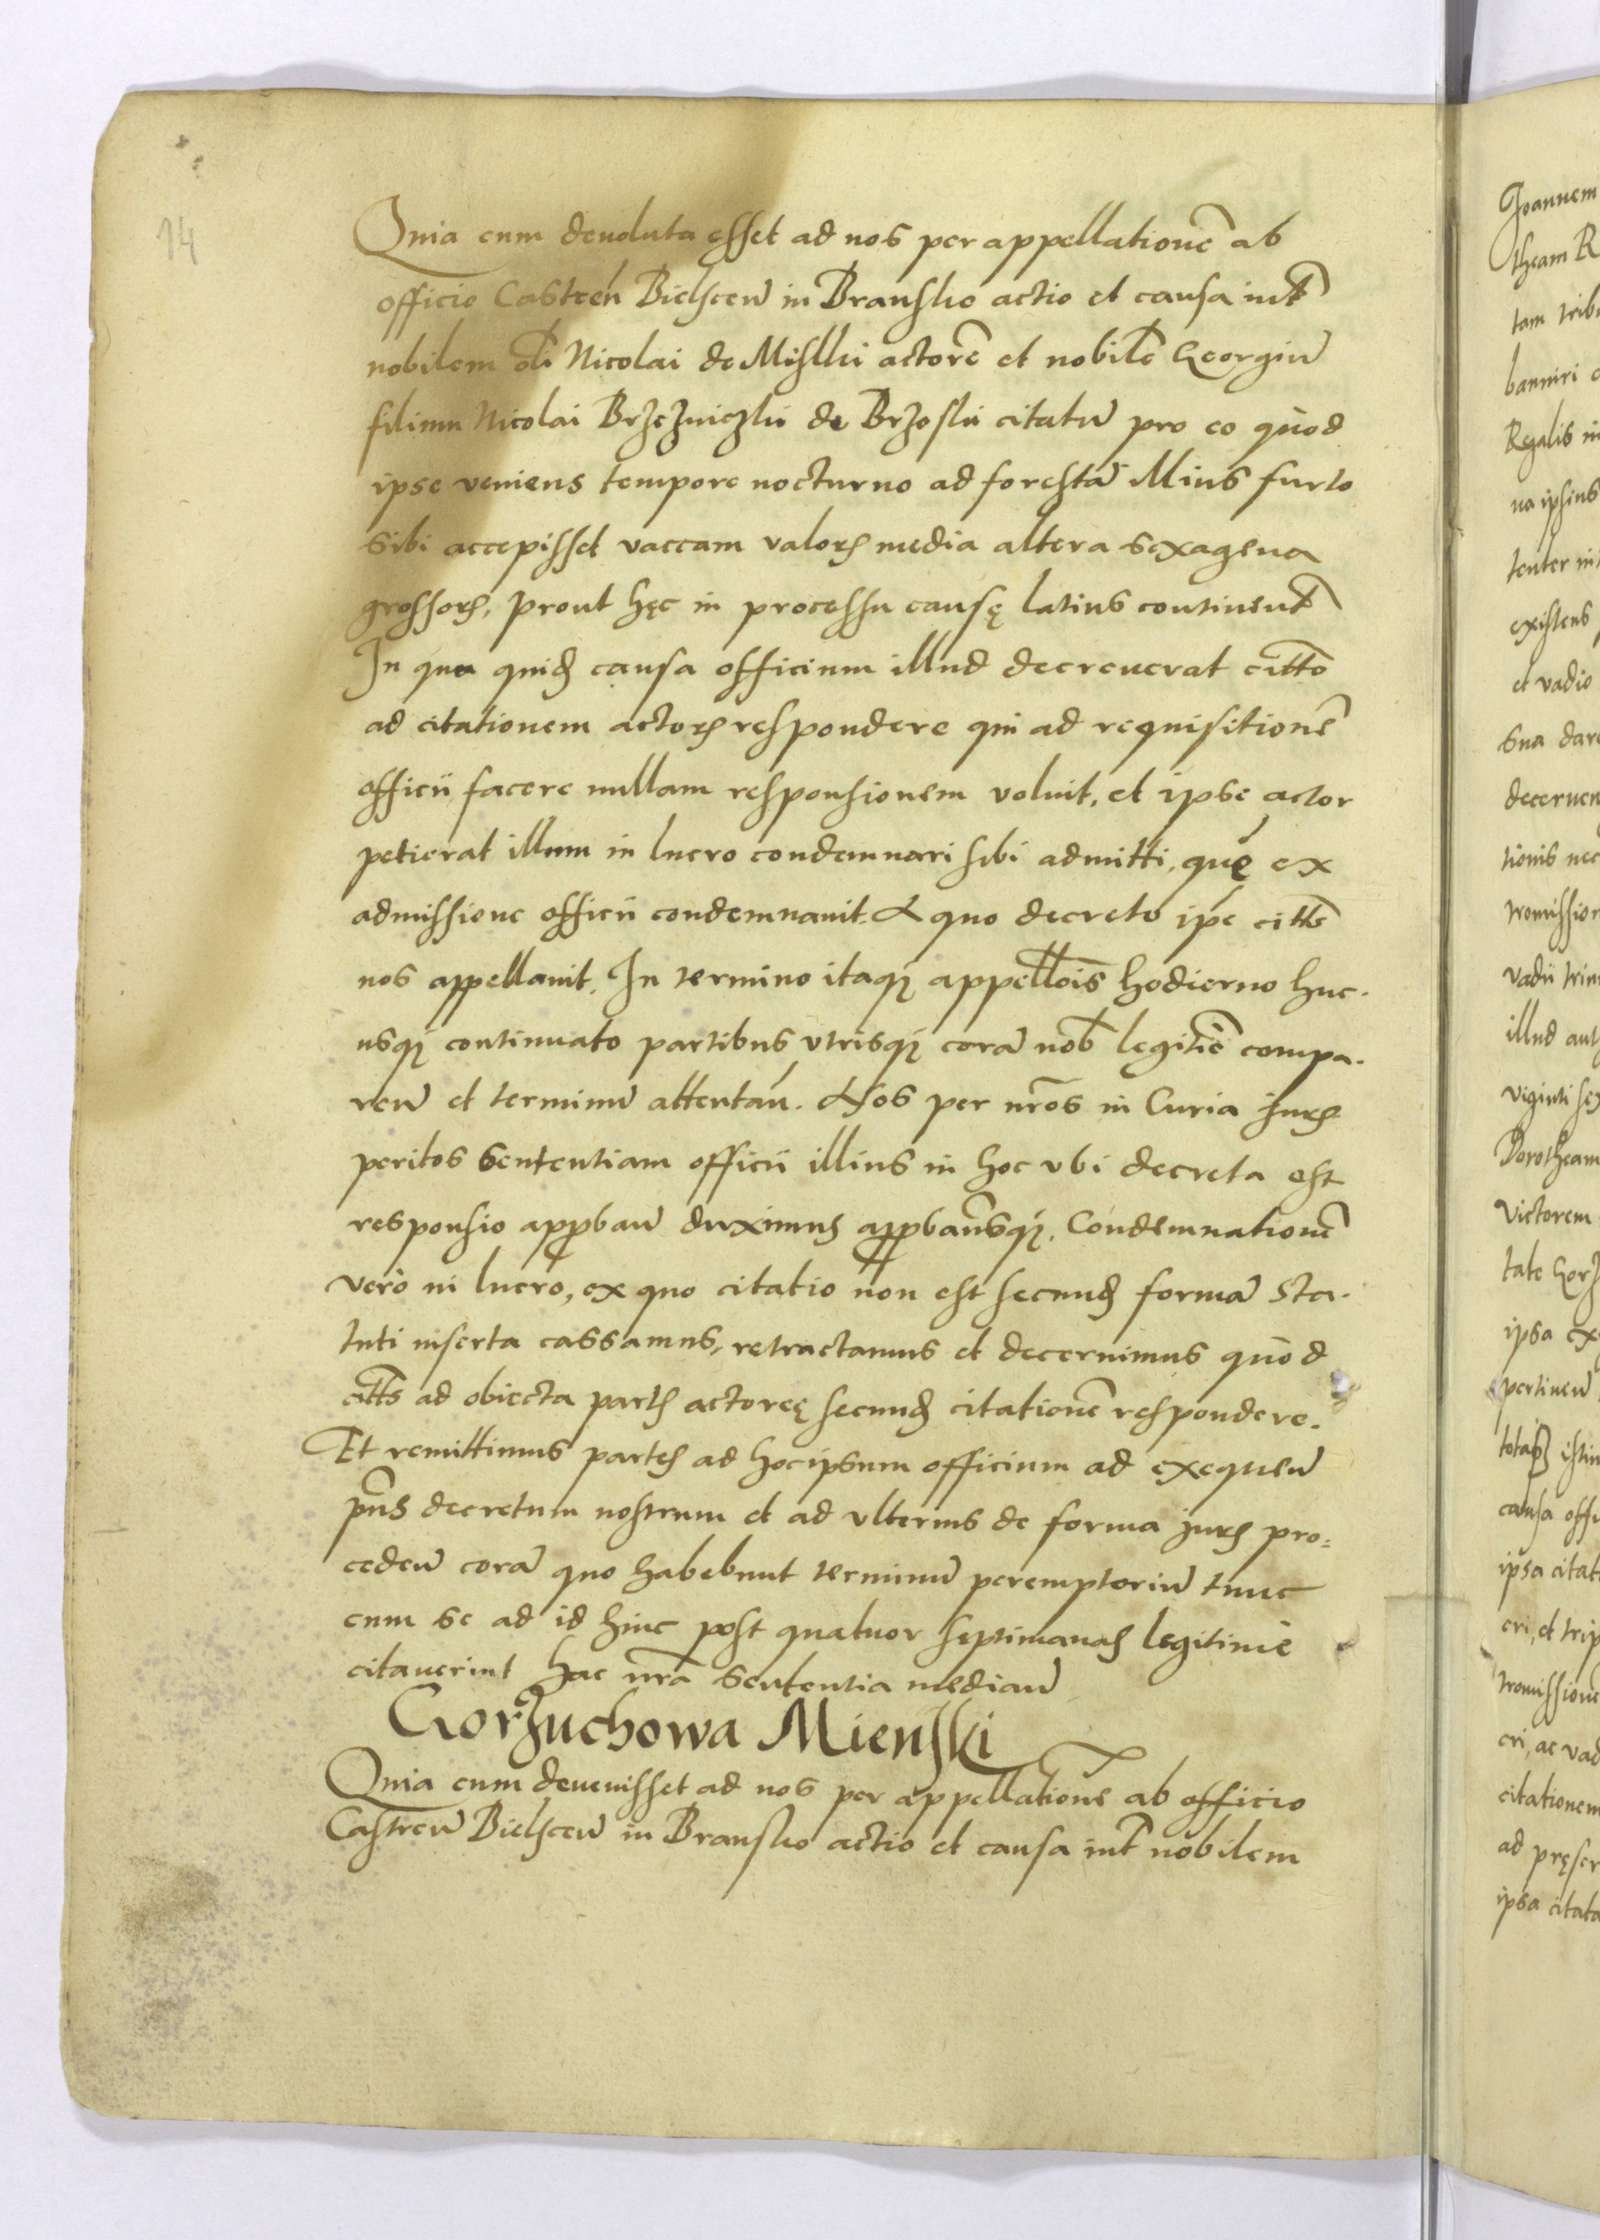 14
Quia cum devoluta esset ad nos per appellationē ab
officio Castren̄ Bielscen̄ in Bransko actio et causa int̄
nobilem oli Nicolai de Miski actorē et nobilē Georgiū
filium Nicolai Brzezniczki de Brzoski citatū pro eo quòd
ipse veniens tempore nocturno ad forestā illius furto
sibi accepisset vaccam valoris media altera sexagena
grossorȝ, prout hęc in processu causę latius continent̄
In qua quidȝ causa officium illud decreverat citto
ad citationem actoris respondere qui ad requisitionē
officii facere nullam responsionem voluit, et ipse actor
petierat illum in lucro condemnari sibi admitti, quē ex
admissione officii condemnavit. A quo decreto ipē citts
nos appellavit. In termino itaqȝ appellōis hodierno huc-
usqȝ continuato partibus utrisqȝ corā nob legitīē compa-
ren̄ et terminū attentan̄. Nos per nr̄os in Curia juris
peritos sententiam officii illius in hoc ubi decreta est
responsio approban̄ duximus approbamusqȝ. Condemnationē
verò in lucro, ex quo citatio non est secundȝ formā Sta-
tuti inserta cassamus, retractamus et decernimus quòd
citts ad obiecta partis actoreę secundȝ citationē respondere.
Et remittimus partes ad hoc ipsum officium ad exequen̄
pn̄s decretum nostrum et ad ulterius de forma juris pro=
ceden̄ corā quo habebunt terminū peremptoriū tunc
cum se ad id hinc post quatuor septimanas legitimè
citaverint hac nr̄a sententia median̄
Gorzuchowa Mienski
Quia cum devenisset ad nos per appellationē ab officio
Castren̄ Bielscen̄ in Bransko actio et causa int̄ nobilem
Joannem
theam R
tam trib
banniri
Regalis in
na ipsius
tenter in
existens
et vadio
sua dar
decernen
tionis nec
tromission
vadii trin
illud aut
viginti sex
Dorotheam
victorem
tate Gorz
ipsa ex
pertinen̄
causa offi
ipsa citat
cri, et trip
tromissionē
cri, ac vad
citationem
ad pręser
ipsa citata